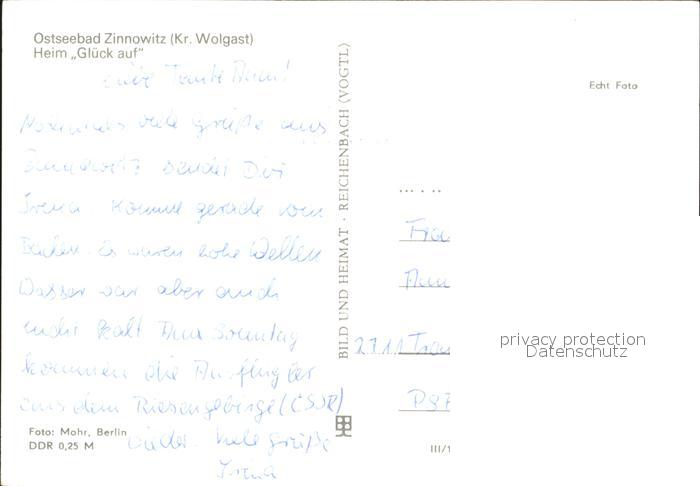 Ostseebad Zinnowitz (Kr. Wolgast)
Heim „Glück auf"
Liebe Tante Anni!
Nochmals viele Grüße aus
Zinnowitz sendet Dir
Irena komme gerade vom
Baden. Es waren hohe Wellen
Wasser war aber auch
nicht kalt Am Sonntag
kommen die Ausflügler
aus dem Riesengebirge (CSSR)
wieder. Viele Grüße
Irena
Foto: Mohr, Berlin
DDR 0,25 M
BILD UND HEIMAT · REICHENBACH (VOGTL)
Echt Foto
Frau
2711
privacy protection
Datenschutz
III/1